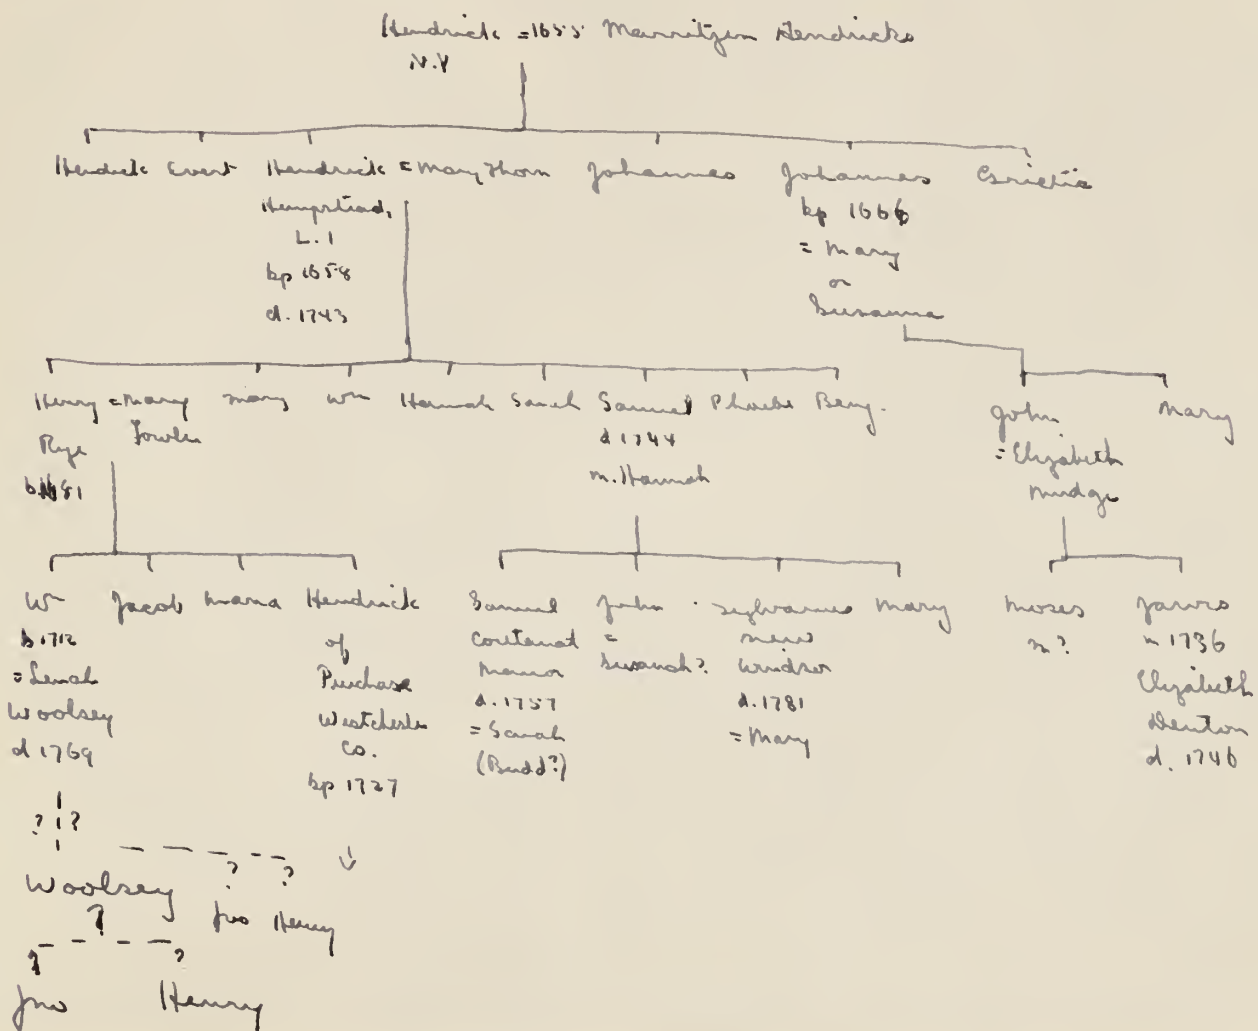 Hendrick = 1655 Marritjen Hendricks
N.Y
Hendrick Evert Hendrick = Mary Thorn Johannes Johannes Grietie
Hempstead,
L.I
bp 1658
d. 1743
bp 1666
= Mary
or
Susanna
Henry = Mary Fowler
Rye
b. 1681
Mary Wm Hannah Sarah Samuel Phoebe Benj.
d 1744
m. Hannah
John
= Elizabeth
Mudge
Mary
Wm
b 1712
= Lenah
Woolsey
d 1769
Jacob Maria Hendrick
of
Purchase
Westchester
Co.
bp 1727
Samuel
Cortlandt
Manor
d. 1757
= Sarah
(Budd?)
John
=
Susanah?
Sylvanus
New
Windsor
d. 1781
= Mary
Mary
Moses
m?
Jarvis
m 1736
Elizabeth
Denton
d. 1746
? ?
Woolsey
? ?
Jno Henry
?
? ?
Jno Henry